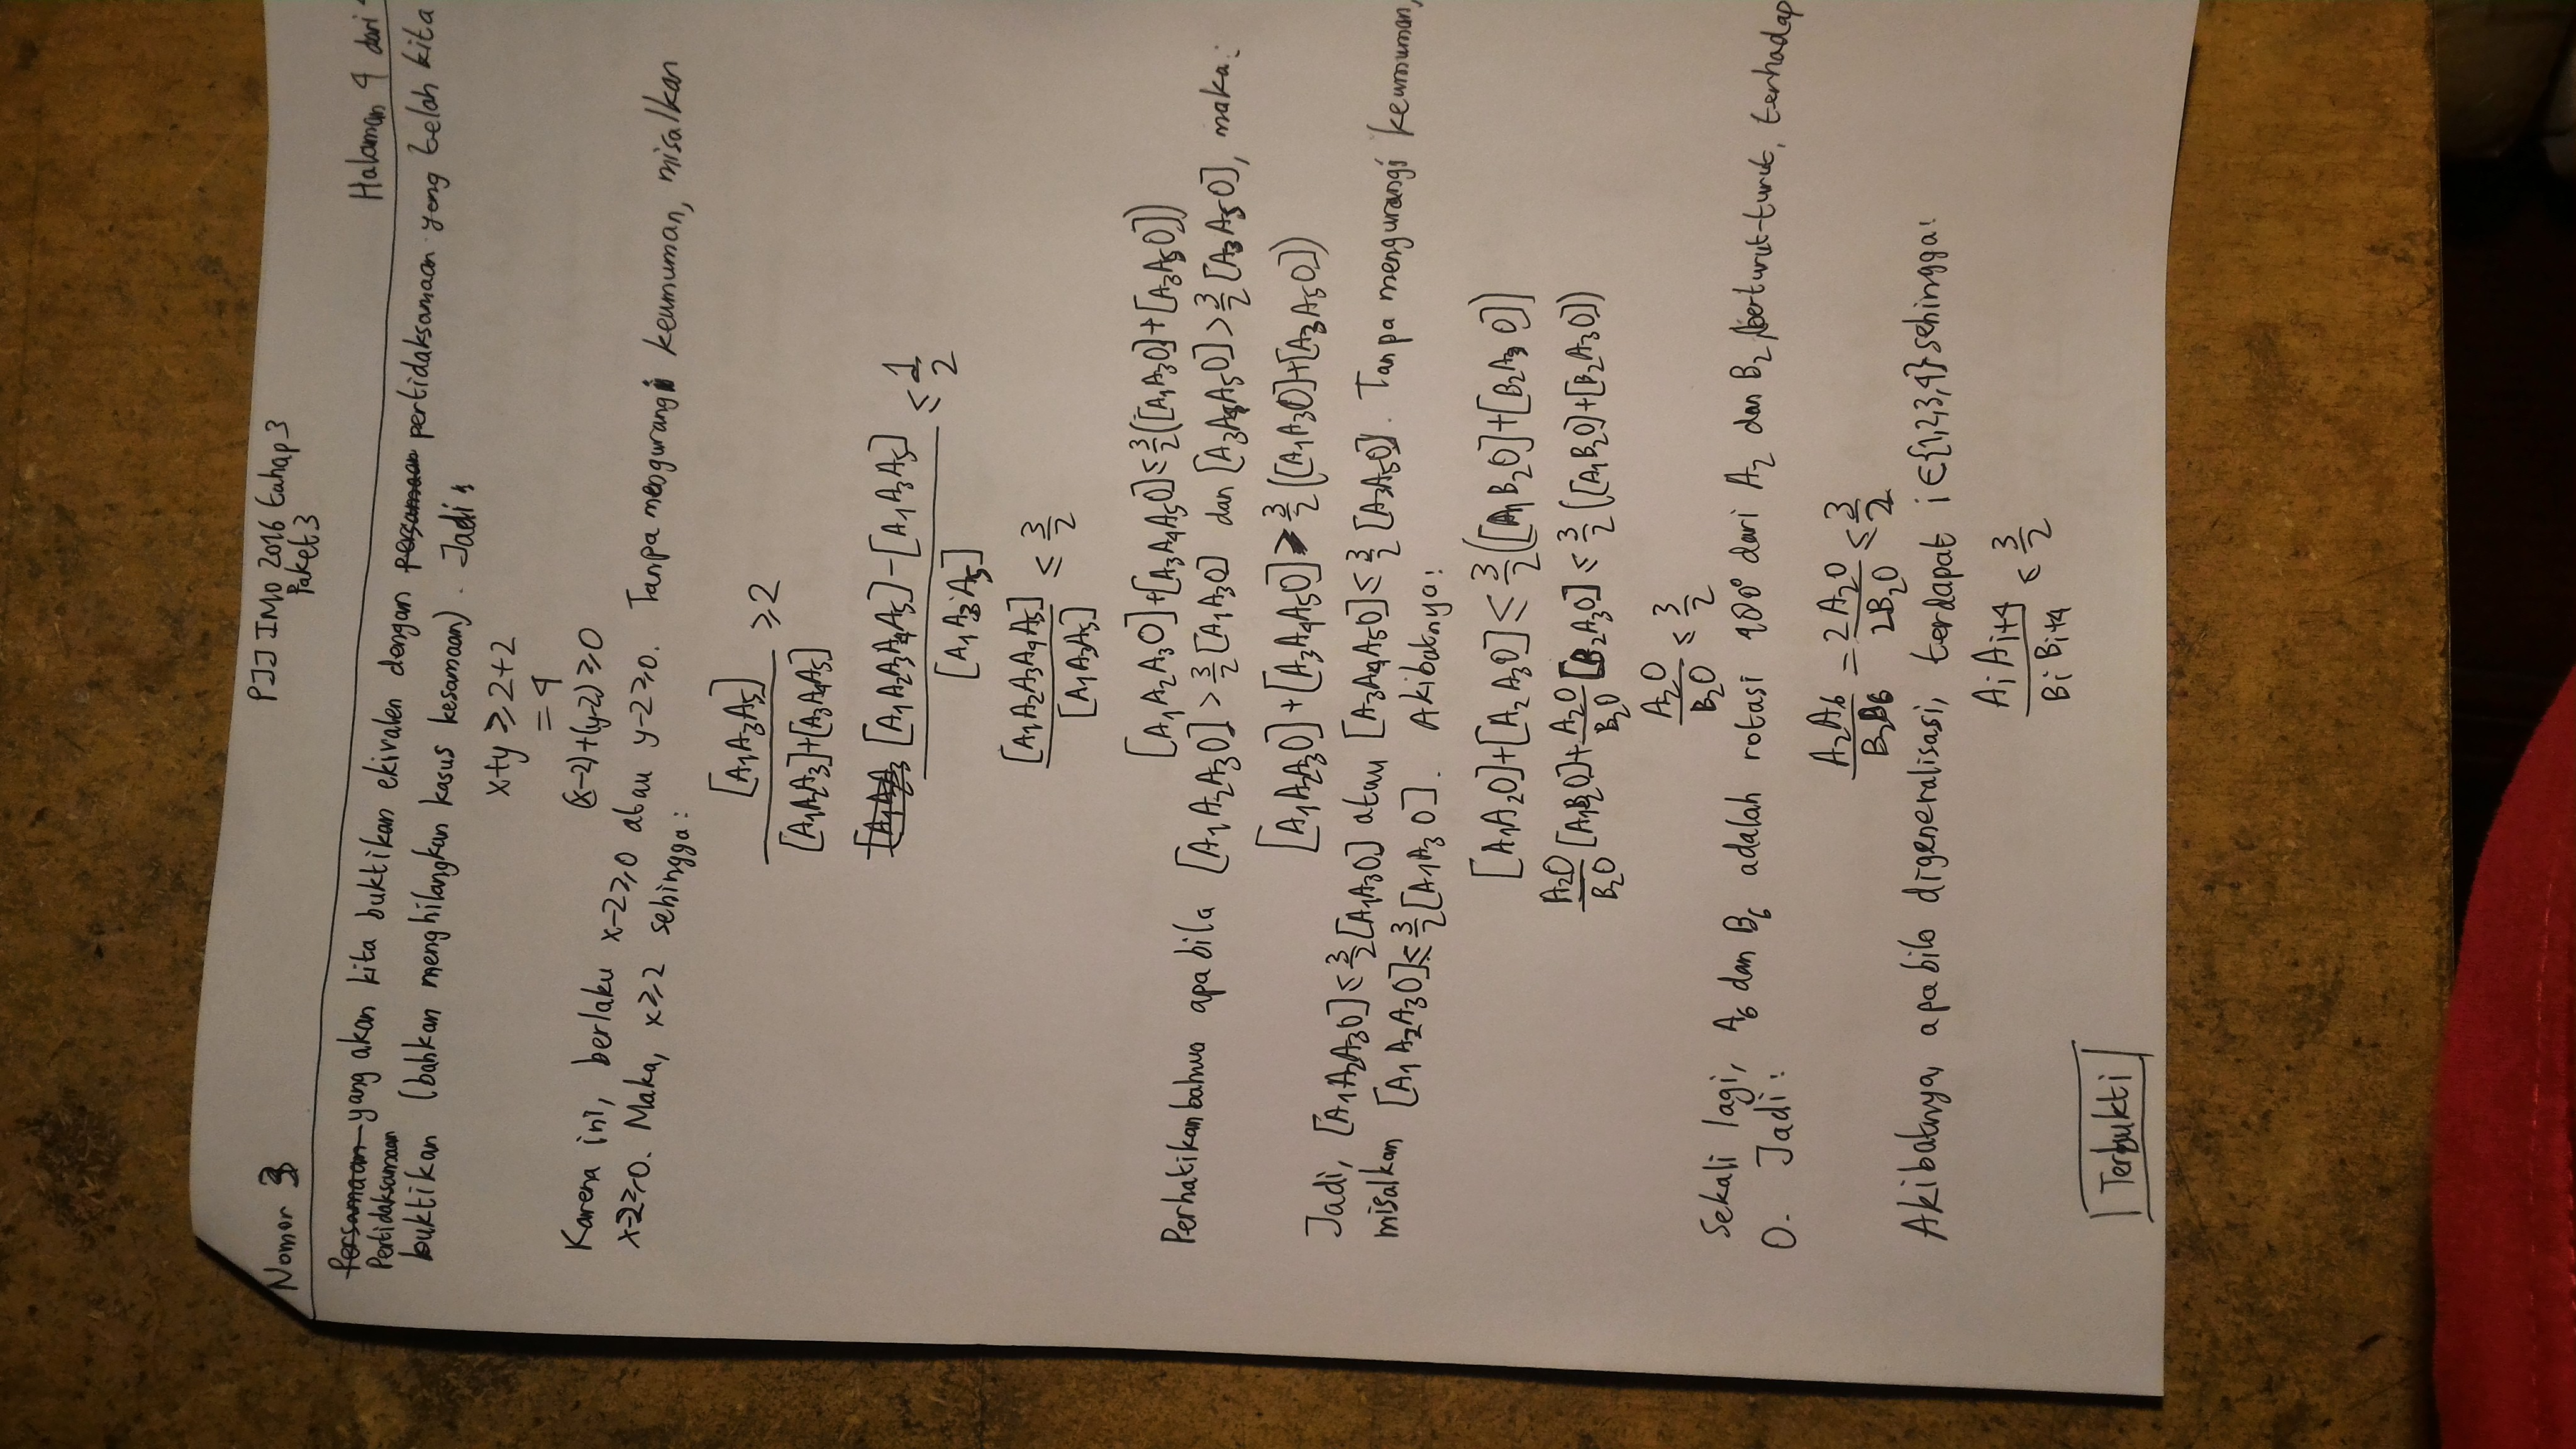 Nomor 3
PJJ IMO 2016 tahap 3
Paket 3
Halaman 4 dari
Persamaan yang akan kita buktikan ekivalen dengan persamaan pertidaksamaan yang telah kita
Pertidaksamaan
buktikan (bahkan menghilangkan kasus kesamaan). Jadi,
x+y ≥ 2+2
= 4
(x-2)+(y-2) ≥ 0
Karena ini, berlaku x-2≥0 atau y-2≥0. Tanpa mengurangi keumuman, misalkan
x-2≥0. Maka, x≥2 sehingga:
[A₁A₃A₅] / [A₁A₂A₃]+[A₃A₄A₅] ≥ 2
[A₁A₂A₃A₄A₅]-[A₁A₃A₅] / [A₁A₃A₅] ≤ 1/2
[A₁A₂A₃A₄A₅] / [A₁A₃A₅] ≤ 3/2
[A₁A₂A₃O]+[A₃A₄A₅O] ≤ 3/2([A₁A₃O]+[A₃A₅O])
Perhatikan bahwa apabila [A₁A₂A₃O] > 3/2[A₁A₃O] dan [A₃A₄A₅O] > 3/2[A₃A₅O], maka:
[A₁A₂A₃O]+[A₃A₄A₅O] > 3/2([A₁A₃O]+[A₃A₅O])
Jadi, [A₁A₂A₃O] ≤ 3/2[A₁A₃O] atau [A₃A₄A₅O] ≤ 3/2[A₃A₅O]. Tanpa mengurangi keumuman,
misalkan [A₁A₂A₃O] ≤ 3/2[A₁A₃O]. Akibatnya:
[A₁A₂O]+[A₂A₃O] ≤ 3/2([A₁B₂O]+[B₂A₃O])
A₂O/B₂O [A₁B₂O]+A₂O/B₂O [B₂A₃O] ≤ 3/2([A₁B₂O]+[B₂A₃O])
A₂O/B₂O ≤ 3/2
Sekali lagi, A₆ dan B₆ adalah rotasi 180° dari A₂ dan B₂, berturut-turut, terhadap
O. Jadi:
A₂A₆/B₂B₆ = 2A₂O/2B₂O ≤ 3/2
Akibatnya, apabila digeneralisasi, terdapat i∈{1,2,3,4} sehingga:
AᵢAᵢ₊₄/BᵢBᵢ₊₄ ≤ 3/2
Terbukti